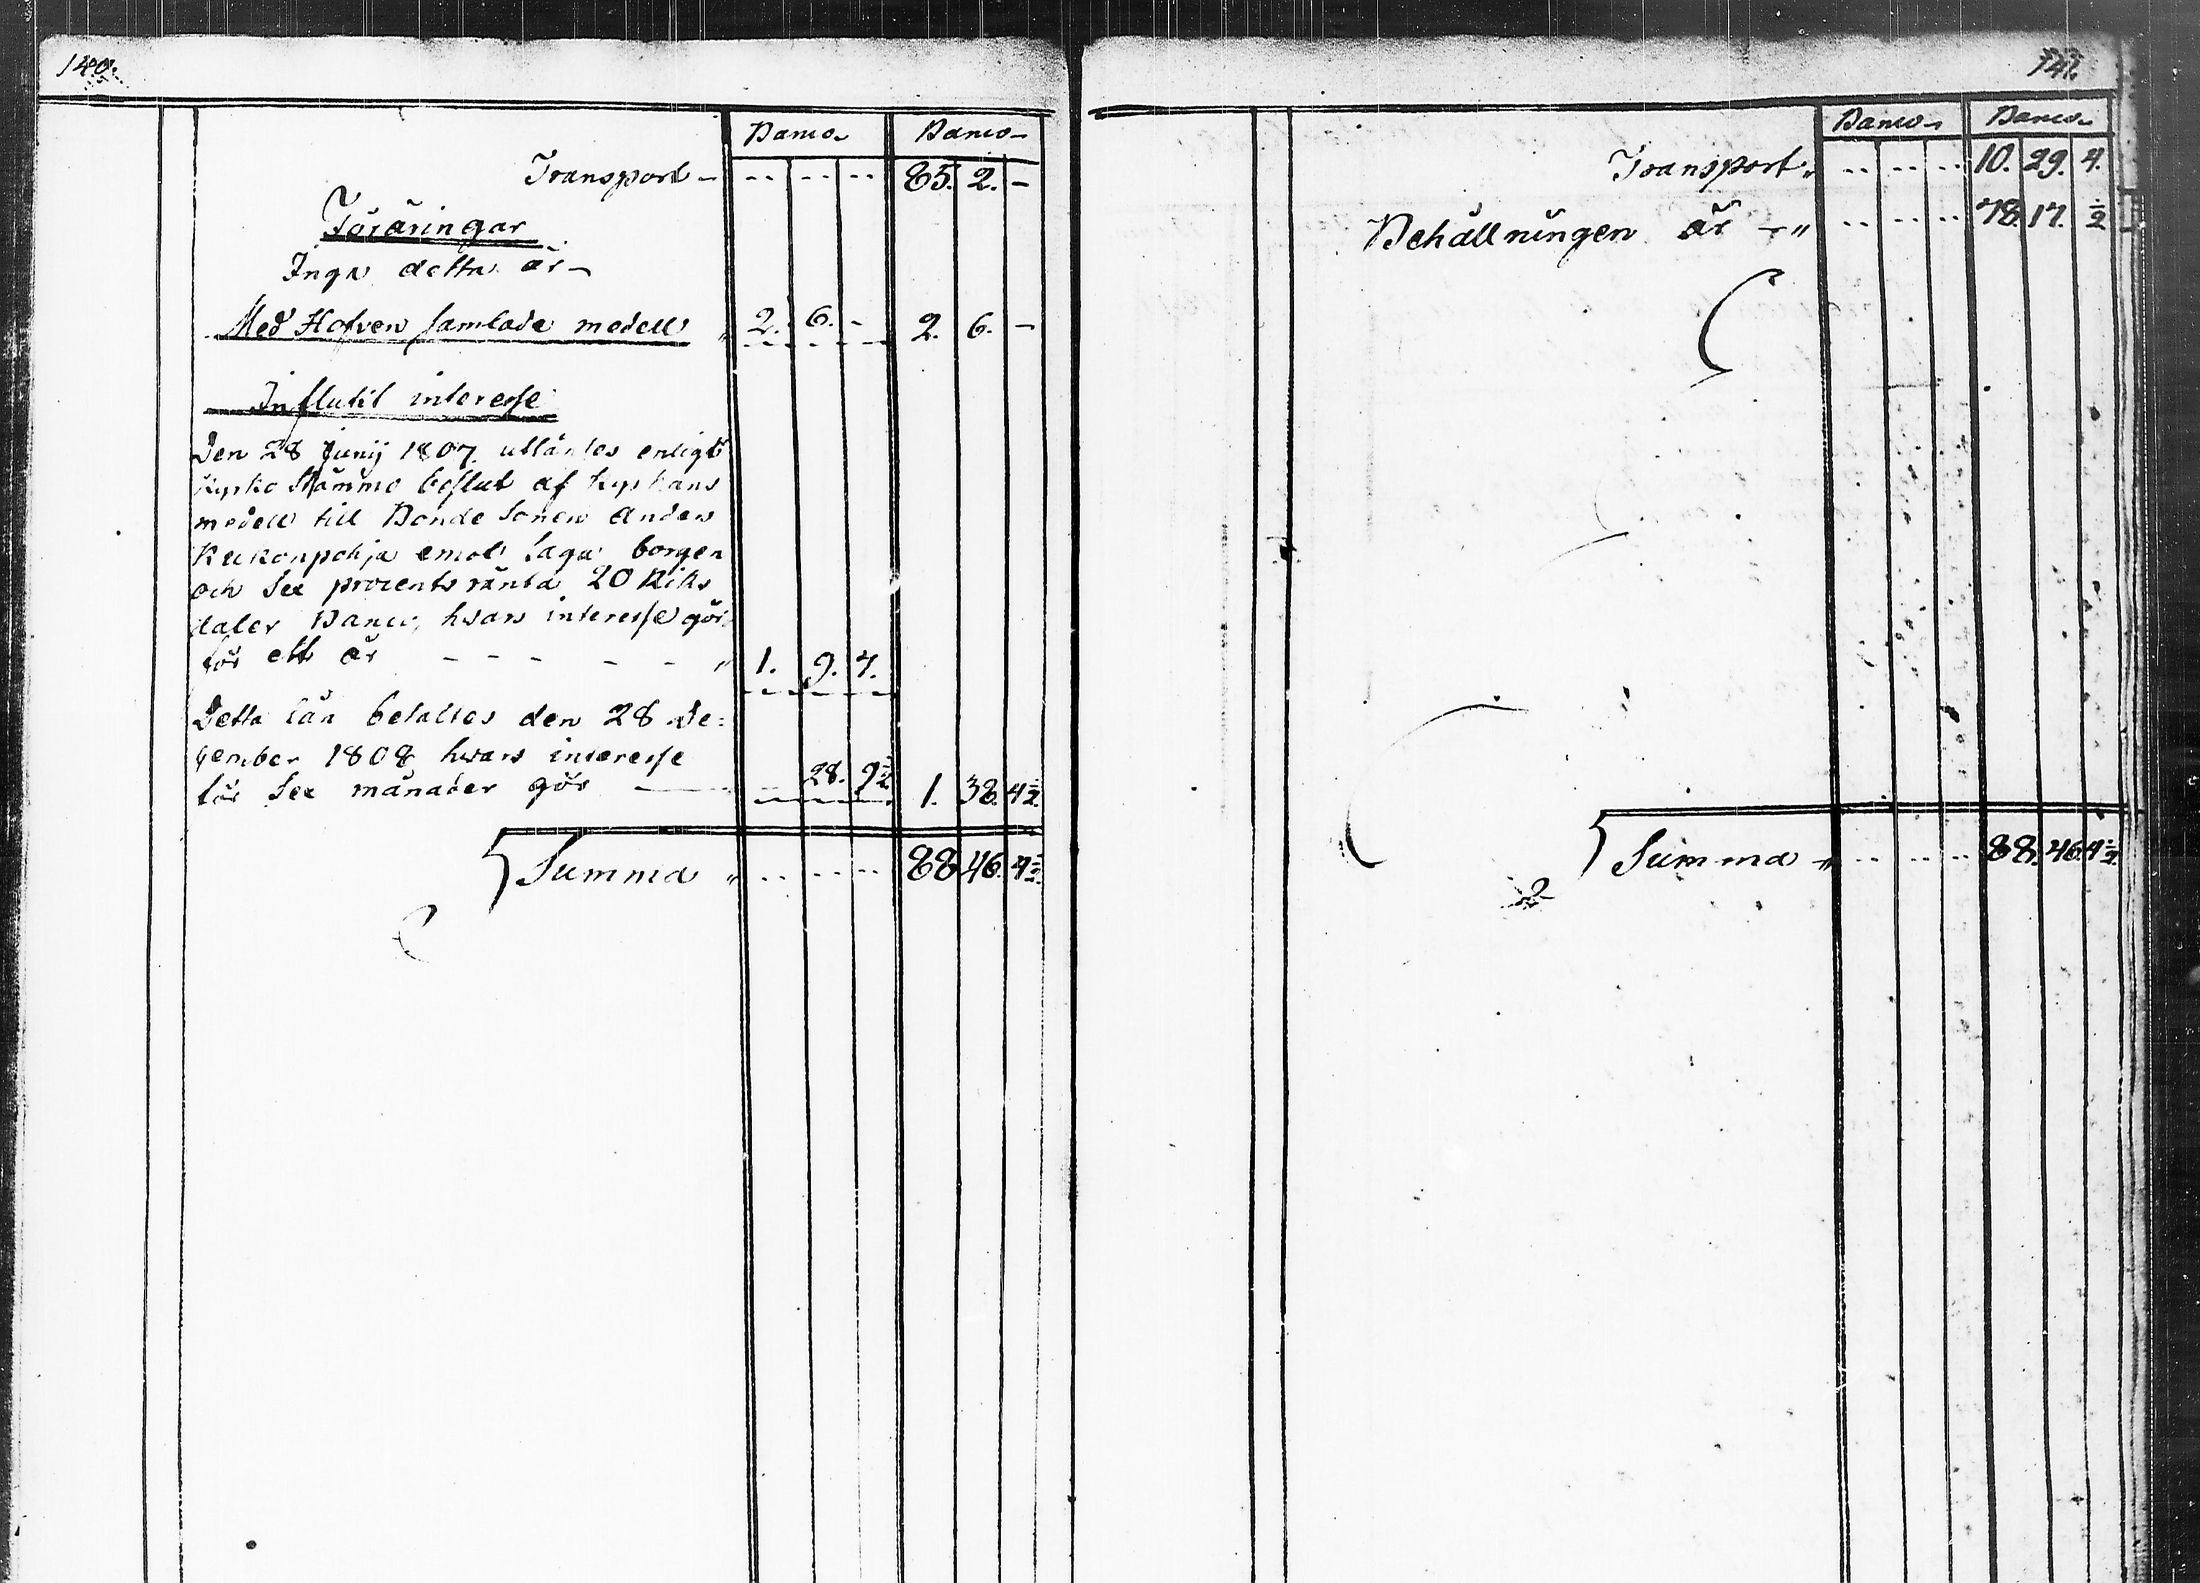 140.
Banco Banco
Transport - 85. 2. -
Föräringar
Inga detta år -
Med Hofven samlade medell 2. 6. - 2. 6. -
Influtit interesse
Den 28 Junij 1807 utlåntes enligt
Kyrko Stämmo beslut af Kyrkans
medell till Bonde Sonen Anders
Keikonpohja emot Laga borgen
och Sex procents ränta 20 Riks
daler Banco, hvars interesse gör
för ett år - - - - - 1. 9. 7.
Detta lån betaltes den 28 De=
cember 1808 hvars interesse
för Sex månader gör - 28. 9½ 1. 38. 4½
Summa 88. 46. 4½
141.
Banco Banco
Transport 10. 29. 4.
Behållningen är 78. 17. ½
Summa 88. 46. 4½